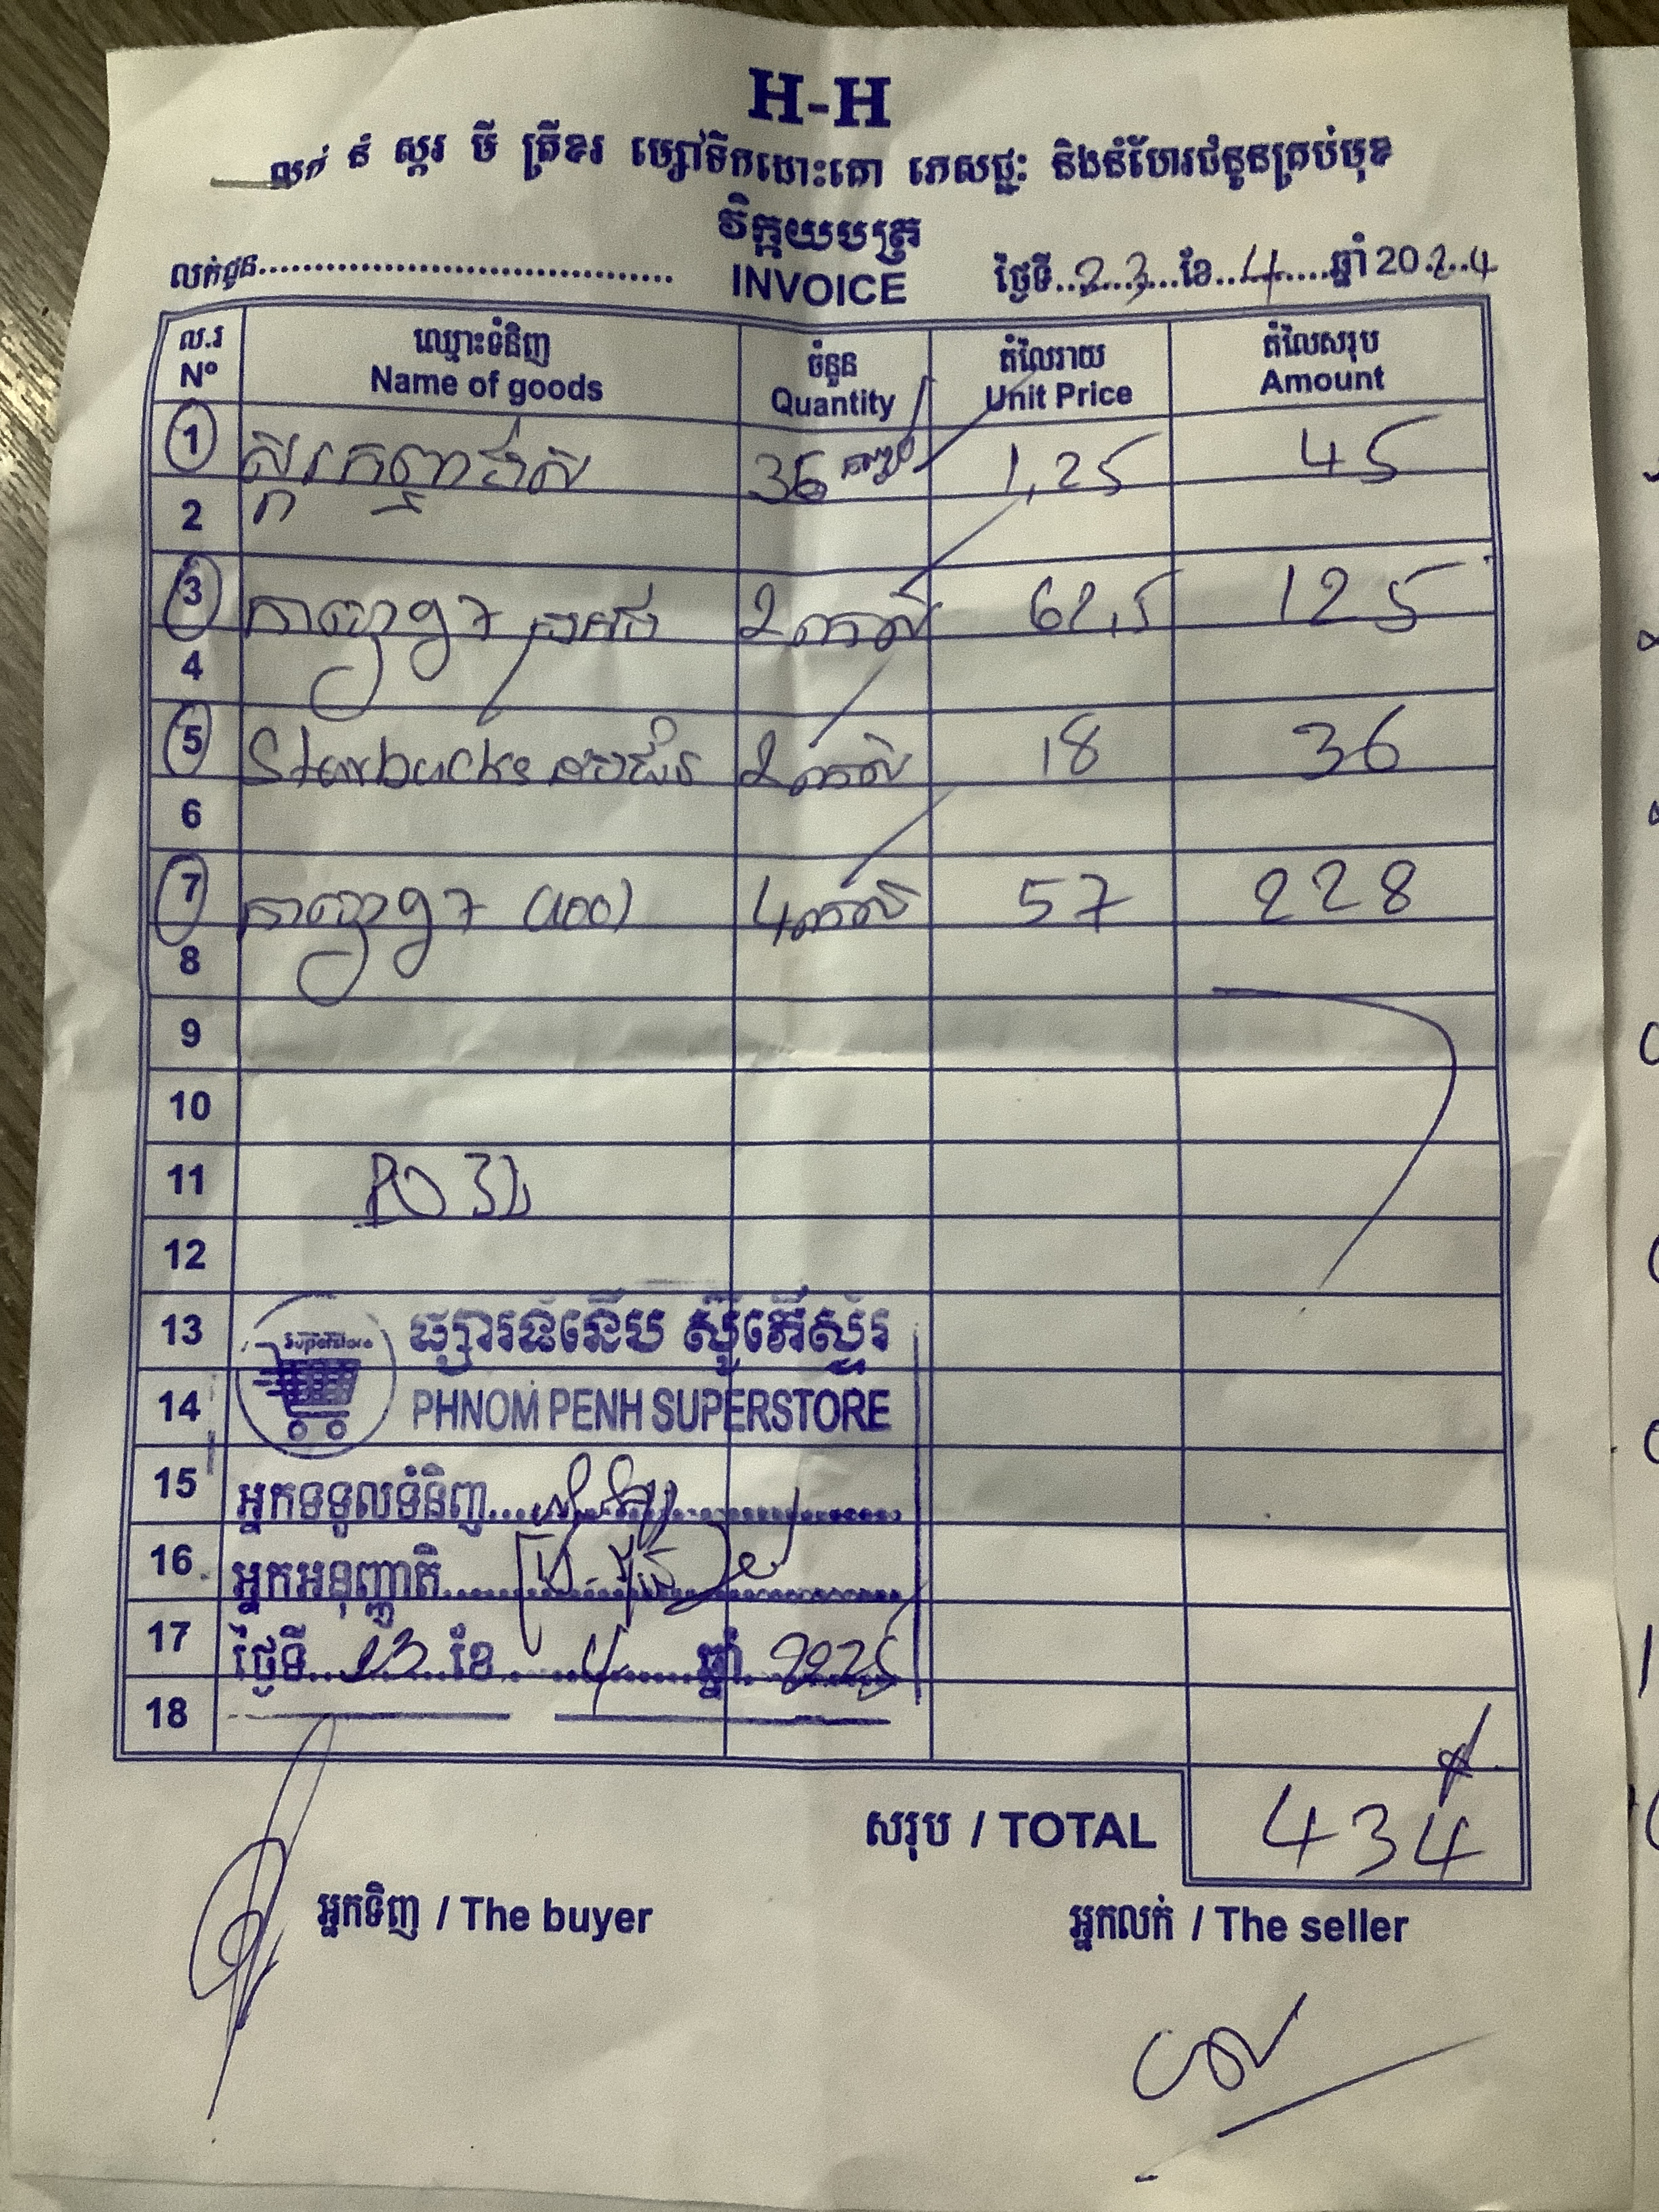 H-H
លក់ នំ ស្ករ មី ត្រីខរ ម្សៅទឹកដោះគោ ភេសជ្ជៈ និងនំហែរជំនូនគ្រប់មុខ
វិក្កយបត្រ
លក់ជូន........ INVOICE ថ្ងៃទី..23..ខែ..4..ឆ្នាំ 2024
ល.រ ឈ្មោះទំនិញ ចំនួន តំលៃរាយ តំលៃសរុប
Nº Name of goods Quantity Unit Price Amount
1 36 1,25 45
2
3 កាហ្វេ G7 2 កេស 62,5 125
4
5 Starbucks 2 កេស 18 36
6
7 កាហ្វេ G7 (100) 4 កេស 57 228
8
9
10
11 PO
12
13 Superstore ផ្សារទំនើប ស៊ូភើស្ទ័រ
14 PHNOM PENH SUPERSTORE
15 អ្នកទទួលទំនិញ
16 អ្នកអនុញ្ញាតិ
17 ថ្ងៃទី..23..ខែ..4..ឆ្នាំ..2025
18
សរុប / TOTAL 434
អ្នកទិញ / The buyer អ្នកលក់ / The seller